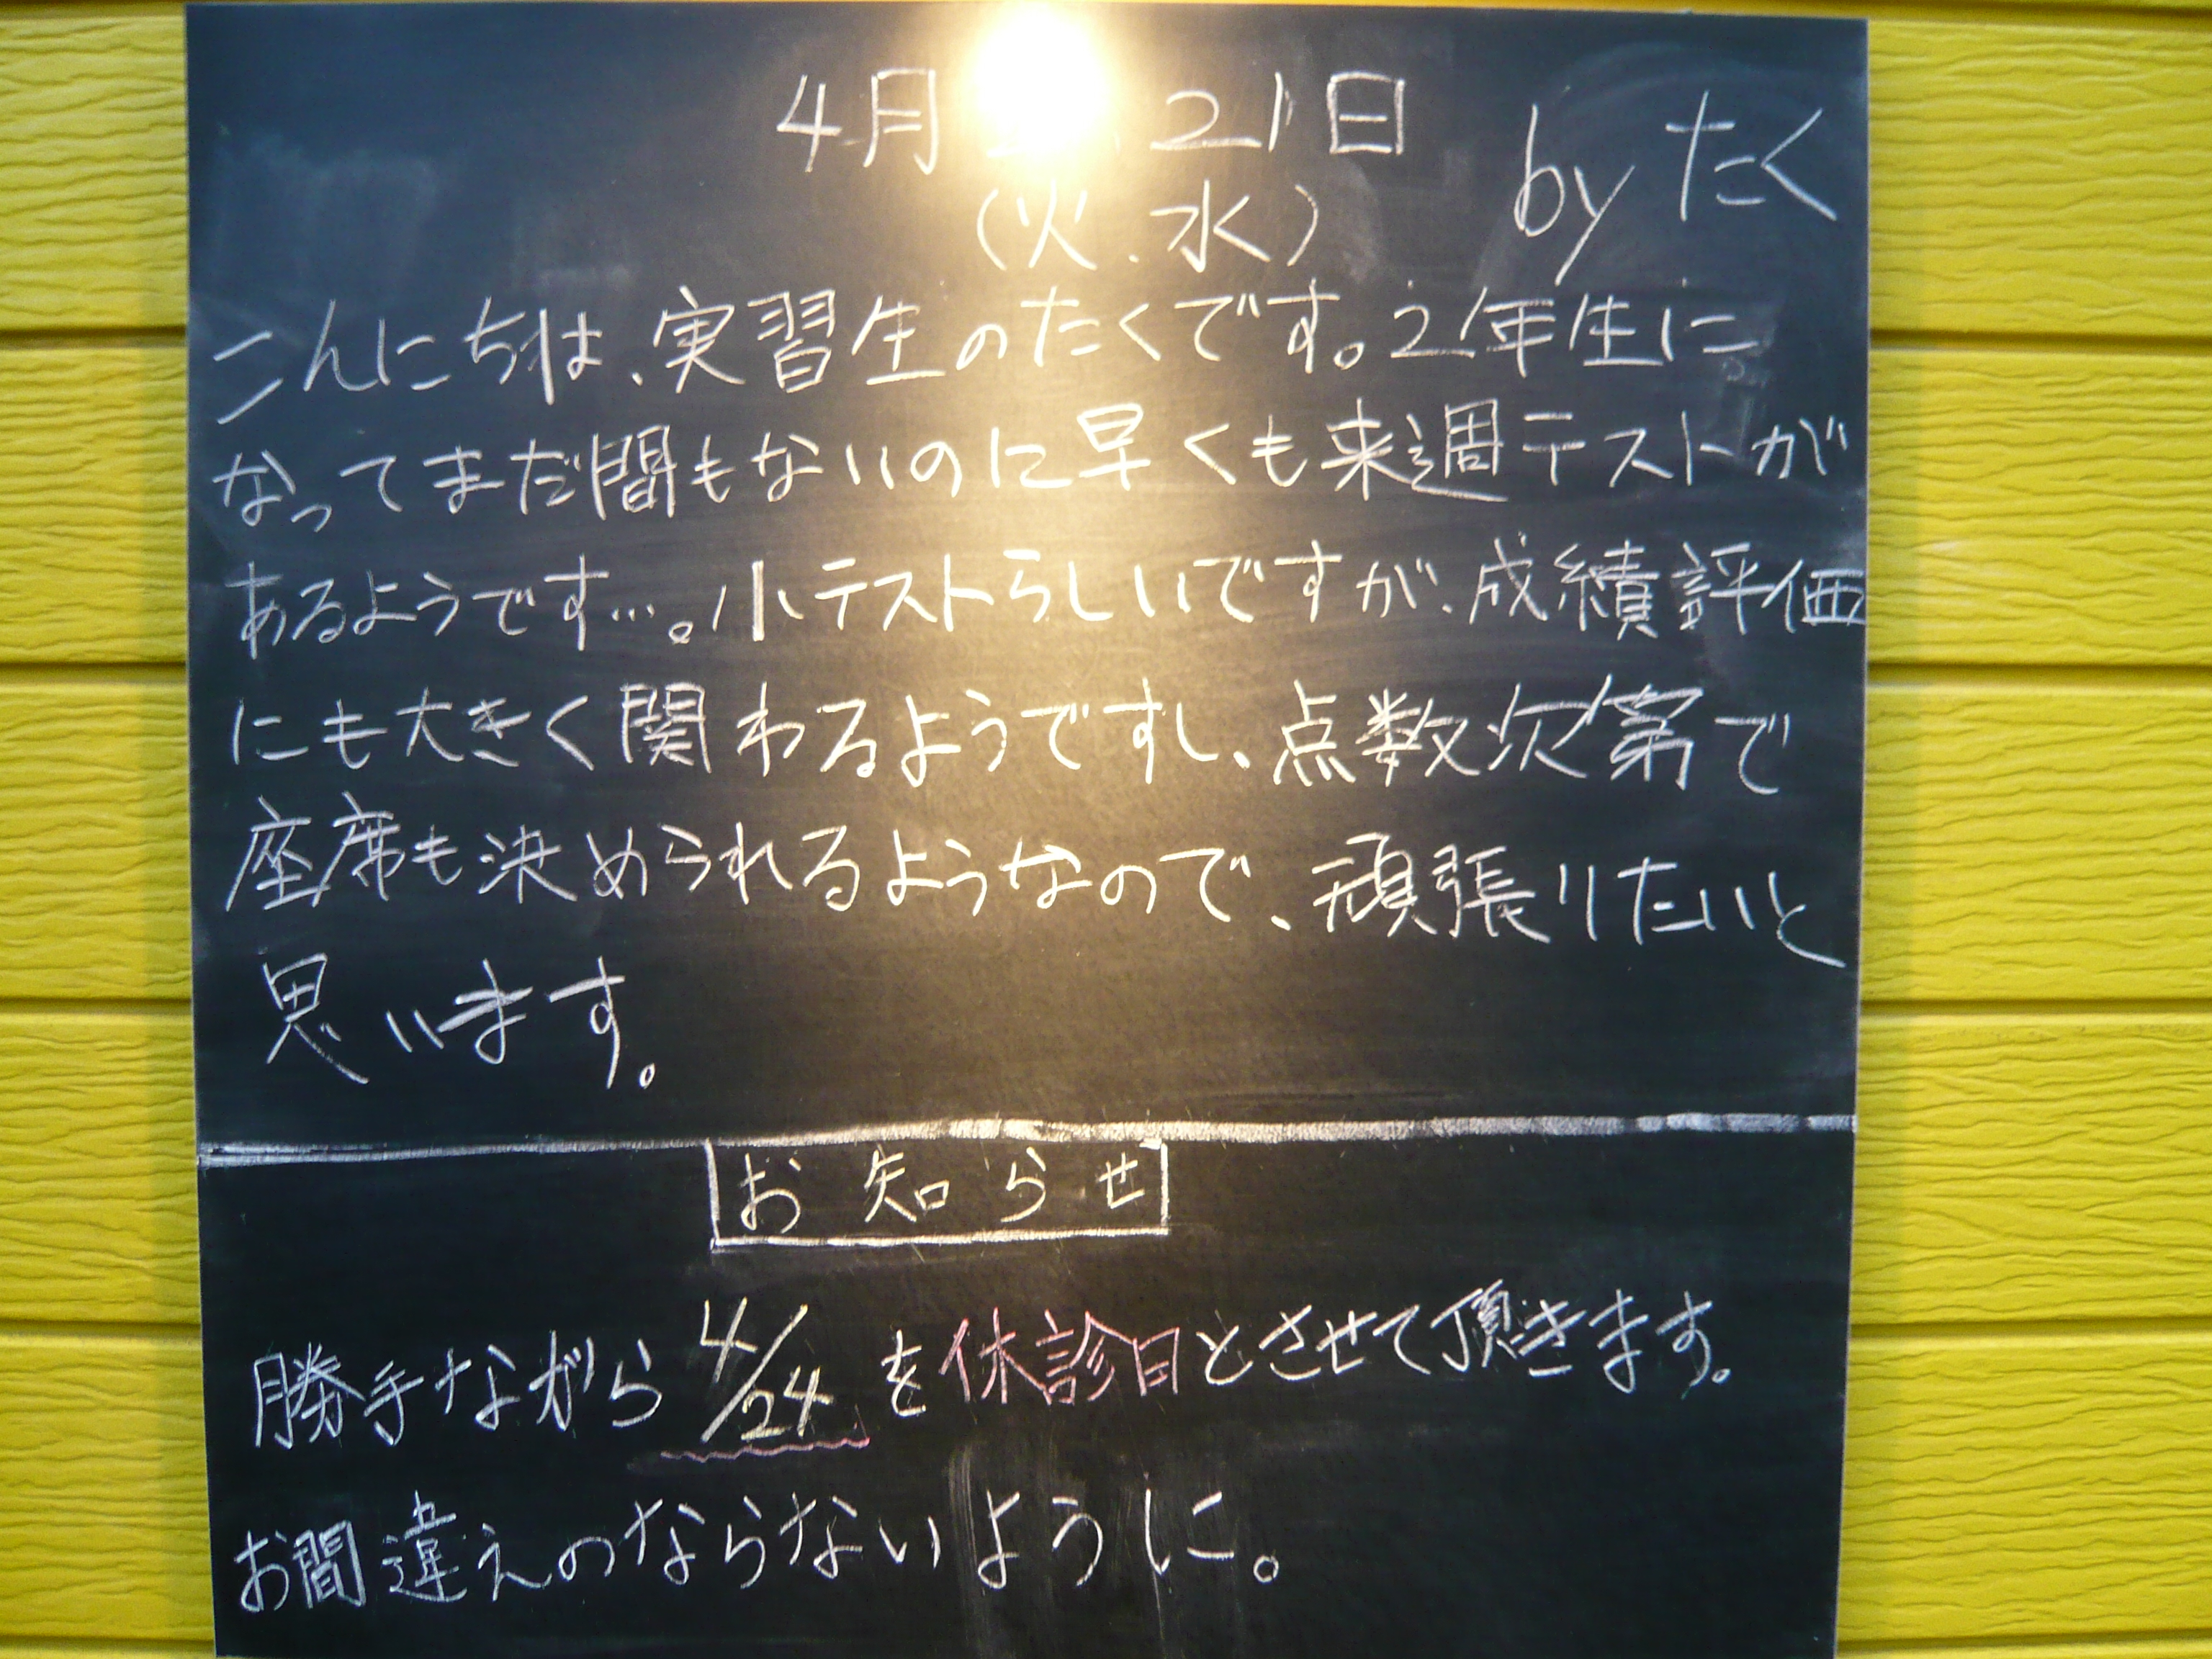 4月 21日
(火.水)
by たく
こんにちは、実習生のたくです。2年生に
なってまだ間もないのに早くも来週テストが
あるようです…。小テストらしいですが、成績評価
にも大きく関わるようですし、点数次第で
座席も決められるようなので、頑張りたいと
思います。
お知らせ
勝手ながら4/24を休診日とさせて頂きます。
お間違えのならないように。